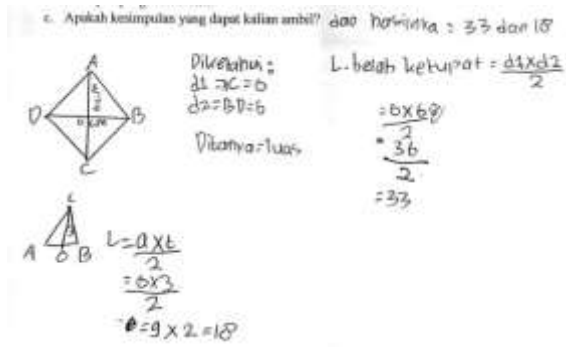 c. Apakah kesimpulan yang dapat kalian ambil? dao hasilnka : 33 dan 18
A
D
B
C
6 cm
Diketahui :
d1 = AC = 6
d2 = BD = 6
Ditanya = luas
L. belah ketupat = d1xd2
2
= 6x6
2
= 36
2
= 33
A 6 B
L = axt
2
= 6x3
2
= 9 x 2 = 18